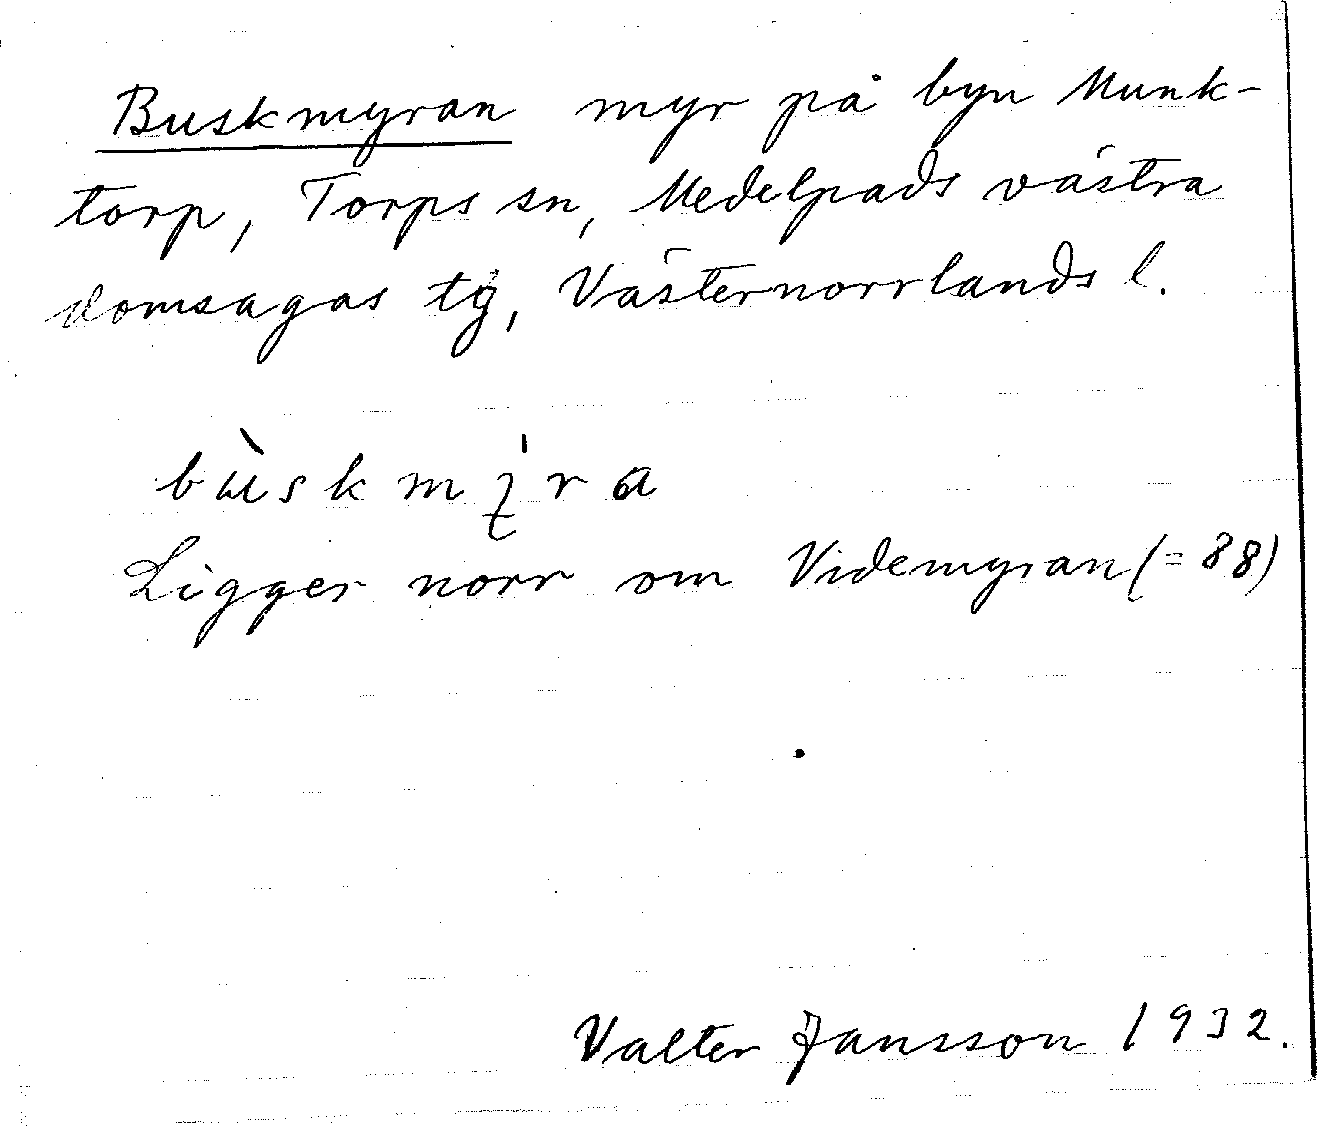 Buskmyran myr på byn Munk-
torp, Torps sn, Medelpads västra
domsagas tg, Västernorrlands l.
Ligger norr om Videmyran (= 88)
Valter Jansson 1932.